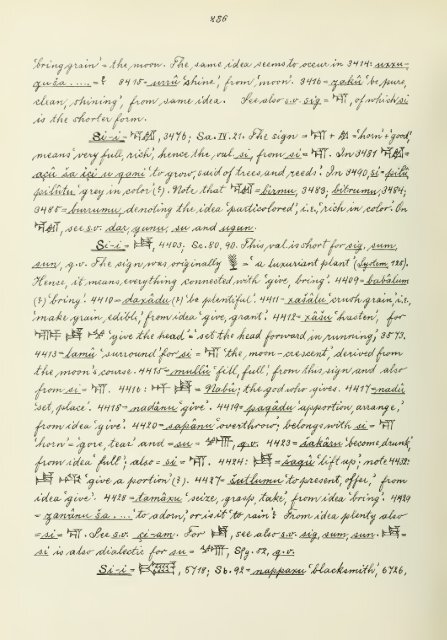 286
'bring grain' = the moon. The same idea seems to occur in 3414: uxxu-
qu ša ..... = ? 3415 = urrû 'shine,' from 'moon'. 3416 = zakû 'be pure,
clean, shining,' from same idea. See also s.v. sig = 𒋛, of which si
is the shorter form.
Si-i = 3476; Sa. IV. 21. The sign = 𒋛 + = 'horn' + 'good,'
means 'very full, rich,' hence the val. si, from si = 𒋛. In 3481 =
açû ša içi u qani 'to grow, said of trees and reeds.' In 3490, si = pitû,
pilûtu 'grey in color' (?). Note that = birmu, 3483; bitrumu, 3484;
3485 = burrumu, denoting the idea 'particolored,' i.e., 'rich in color.' On
see s.v. dar, gunu, su and ugun.
Si-i = 𒋧, 4403; Sc. 80, 90. This val. is short for sig, sum,
sun, q.v. The sign was originally = 'a luxuriant plant' (System, 125).
Hence, it means everything connected with 'give, bring'. 4409 = babâlum
(?) 'bring'. 4410 = daxâdu (?) 'be plentiful'. 4411 = xašâlu 'crush grain,' i.e.,
'make grain edible,' from idea 'give, grant'. 4412 = xâšu 'hasten,' for
'give the head' = 'set the head forward in running,' 3573.
4413 = lamû 'surround' for si = 𒋛 'the moon-crescent,' derived from
the moon's course. 4415 = mullû 'fill, full,' from this sign and also
from si = 𒋛. 4416: = Nabû; the god who gives. 4417 = nadû
'set, place'. 4418 = nadânu 'give'. 4419 = paqâdu 'apportion, arrange,'
from idea 'give'. 4420 = sapânu 'overthrow;' belongs with si = 𒋛
'horn' = 'gore, tear' and = su = q.v. 4423 = šakâru 'become drunk,'
from idea 'full'; also = si = 𒋛. 4424: = šaqû 'lift up;' note 4438:
'give a portion' (?). 4427 = šutlumu 'to present, offer,' from
idea 'give'. 4428 = tamâxu 'seize, grasp, take,' from idea 'bring'. 4429
= zanânu ša ..... 'to adorn,' or is it 'to rain'? From idea plenty also
= si = 𒋛. See s.v. çi-am. For 𒋧, see also s.v. sig, sum, sun. 𒋧 =
si is also dialectic for su = Sfg. 52, q.v.
Si-i = 5718; Sb. 92 = nappaxu 'blacksmith,' 6726,